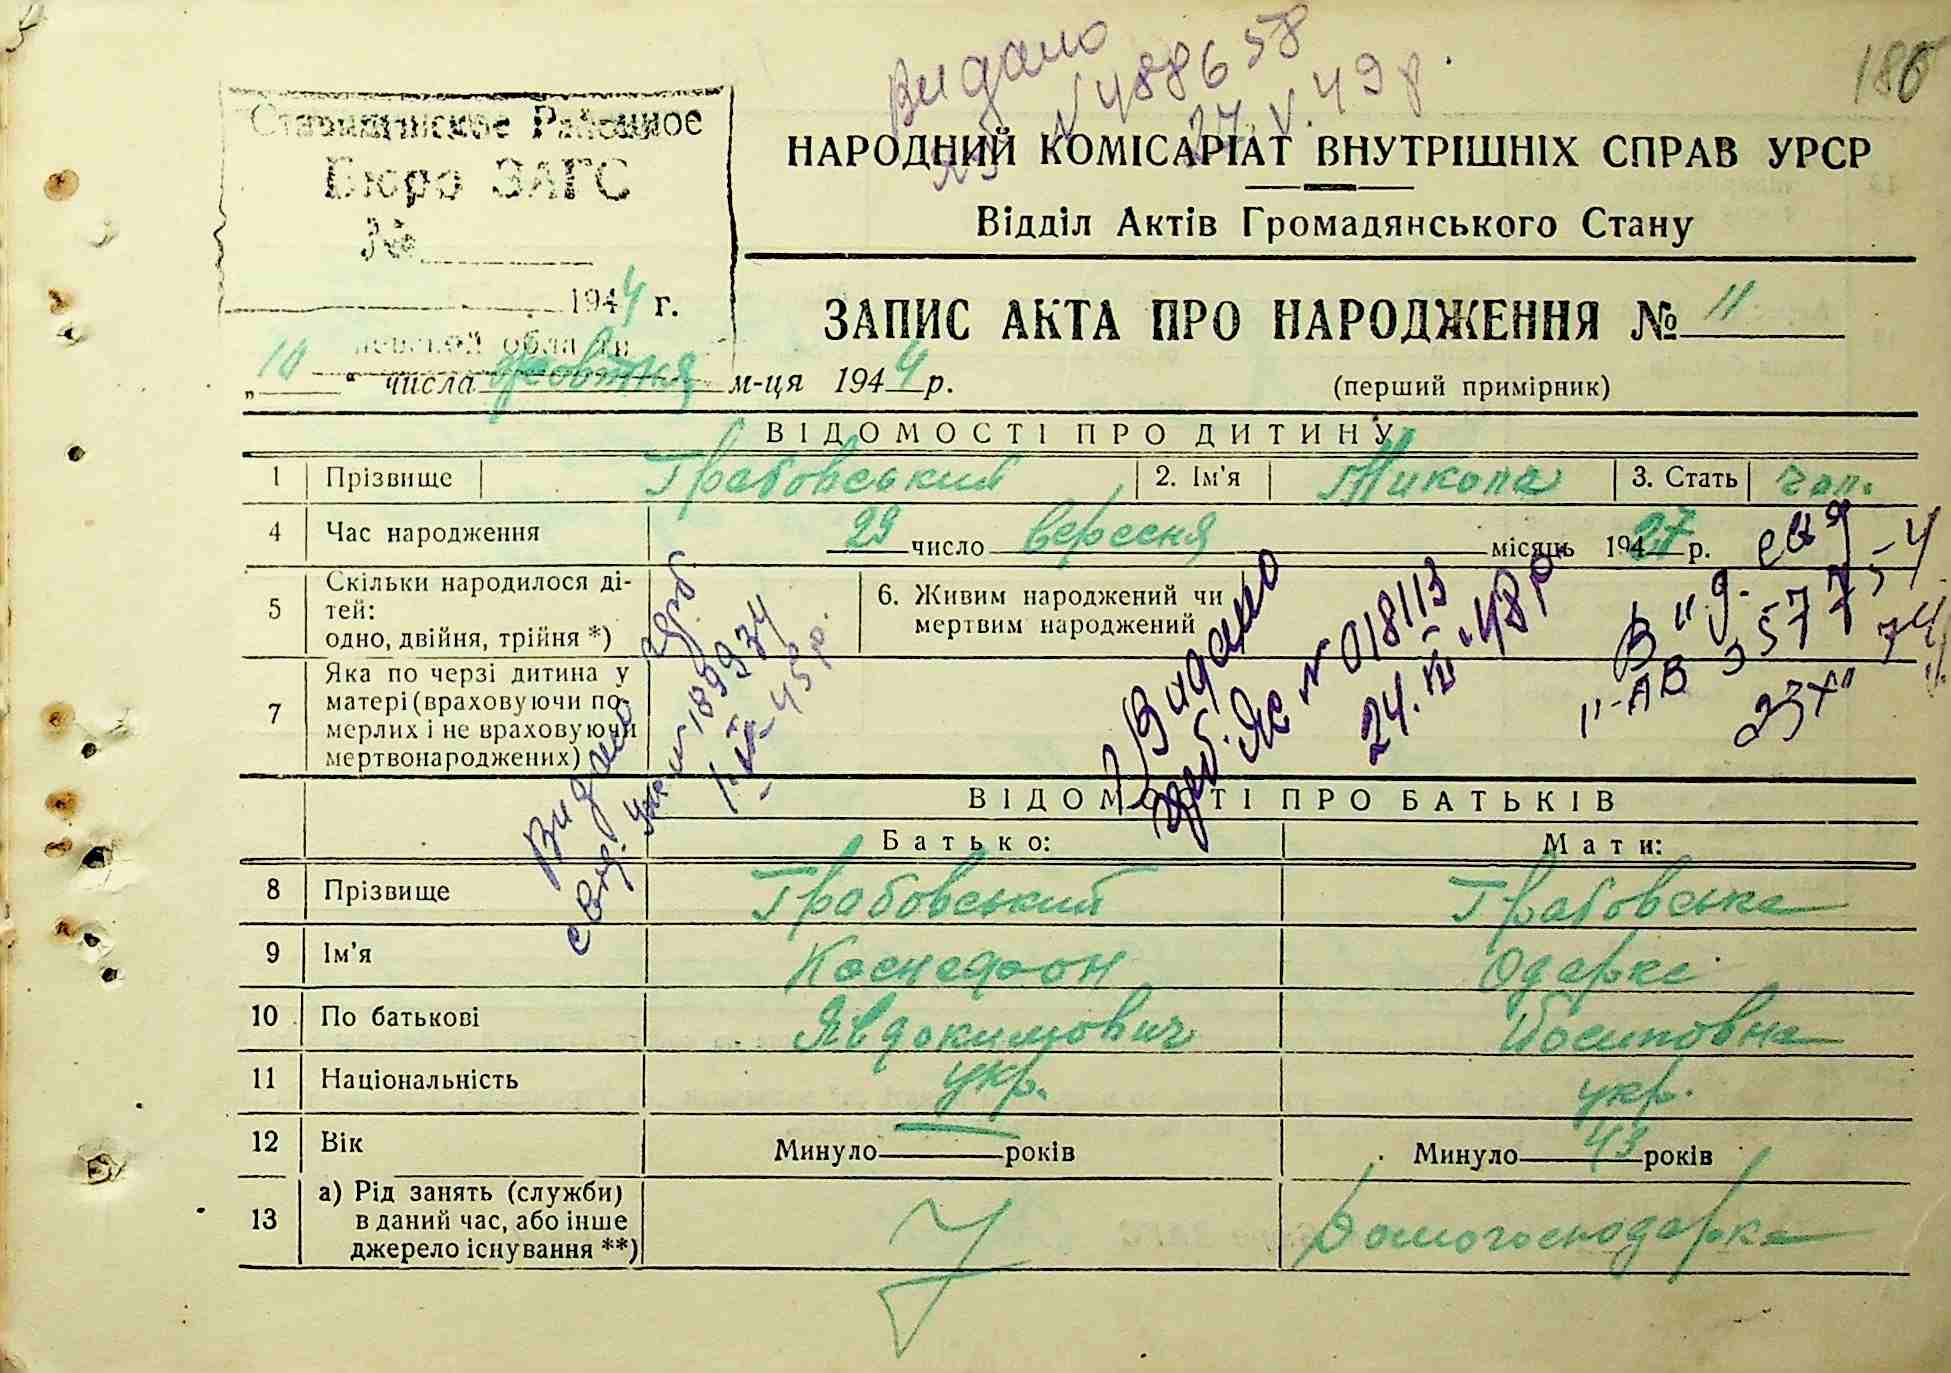 Видано
N 488658
27.V.49 р.
186
Ставищенское Районное
Бюро ЗАГС
№
1944 г.
НАРОДНИЙ КОМІСАРІАТ ВНУТРІШНІХ СПРАВ УРСР
Відділ Актів Громадянського Стану
ЗАПИС АКТА ПРО НАРОДЖЕННЯ № 11
„10“ числа жовтня м-ця 1944 р.
(перший примірник)
ВІДОМОСТІ ПРО ДИТИНУ
1 Прізвище Грабовський 2. Ім'я Микола 3. Стать чол.
4 Час народження 29 число вересня місяць 1927 р.
5 Скільки народилося ді-
тей:
одно, двійня, трійня *)
6. Живим народжений чи
мертвим народжений
7 Яка по черзі дитина у
матері (враховуючи по-
мерлих і не враховуючи
мертвонароджених)
Видано
N 189934
45 р.
Видано
N 018113
24.III.48 р.
ВІДОМОСТІ ПРО БАТЬКІВ
Батько: Мати:
8 Прізвище Грабовський Грабовська
9 Ім'я Ксенофон Одарка
10 По батькові Явдокимович Йосиповна
11 Національність укр. укр.
12 Вік Минуло років Минуло 43 років
13 а) Рід занять (служби)
в даний час, або інше
джерело існування **)
Домогосподарка